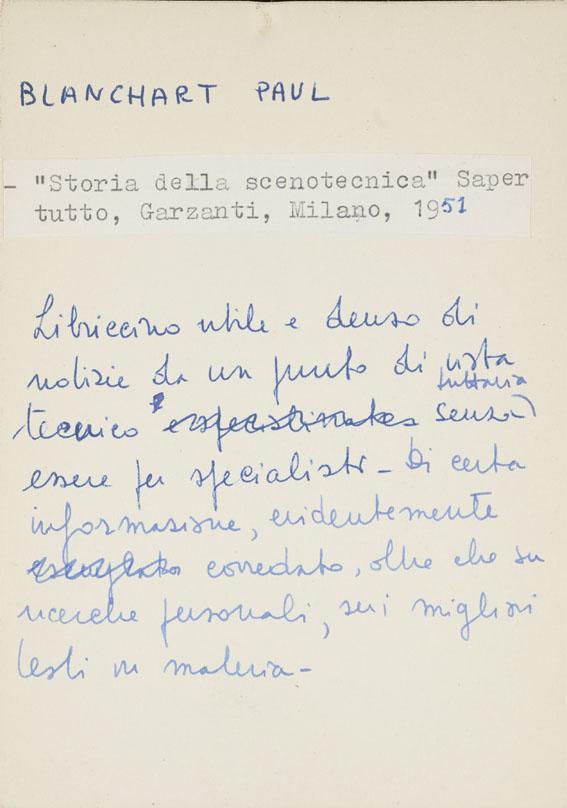 BLANCHART PAUL
- "Storia della scenotecnica" Saper
tutto, Garzanti, Milano, 1951
Libriccino utile e denso di
notizie da un punto di vista
tuttavia
tecnico e senza
essere per specialisti - Di certa
informazione, evidentemente
corredato, oltre che su
ricerche personali, sui migliori
testi in materia -